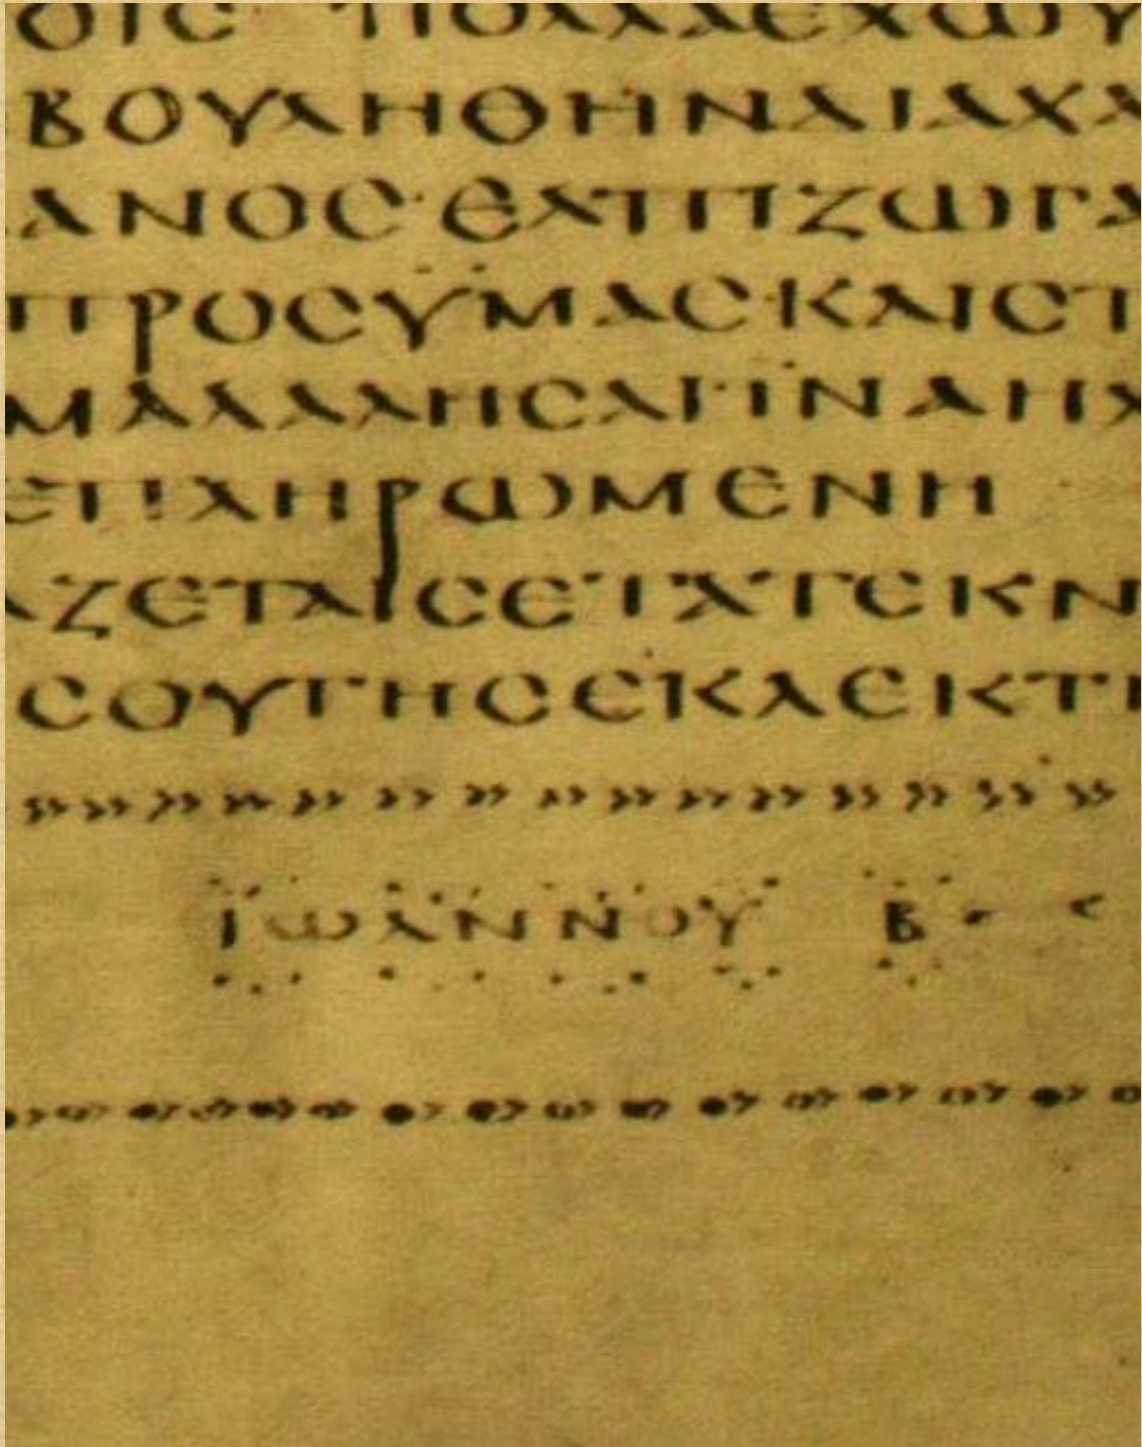 ΟΙϹ ΠΟΛΛΑΕΧΩΥ
ΒΟΥΛΗΘΗΝΔΙΑΧΑ
ΑΝΟϹ·ΕΛΠΙΖΩΓΑ
ΠΡΟϹΫΜΑϹΚΑΙϹΤ
ΜΑΛΑΛΗϹΑΙΪΝΑΗΧ
ΕΠΛΗΡΩΜΕΝΗ
ΑΖΕΤΑΙϹΕΤΑΤΕΚΝ
ϹΟΥΤΗϹΕΚΛΕΚΤΗ
ΪΩΑΝΝΟΥ Β